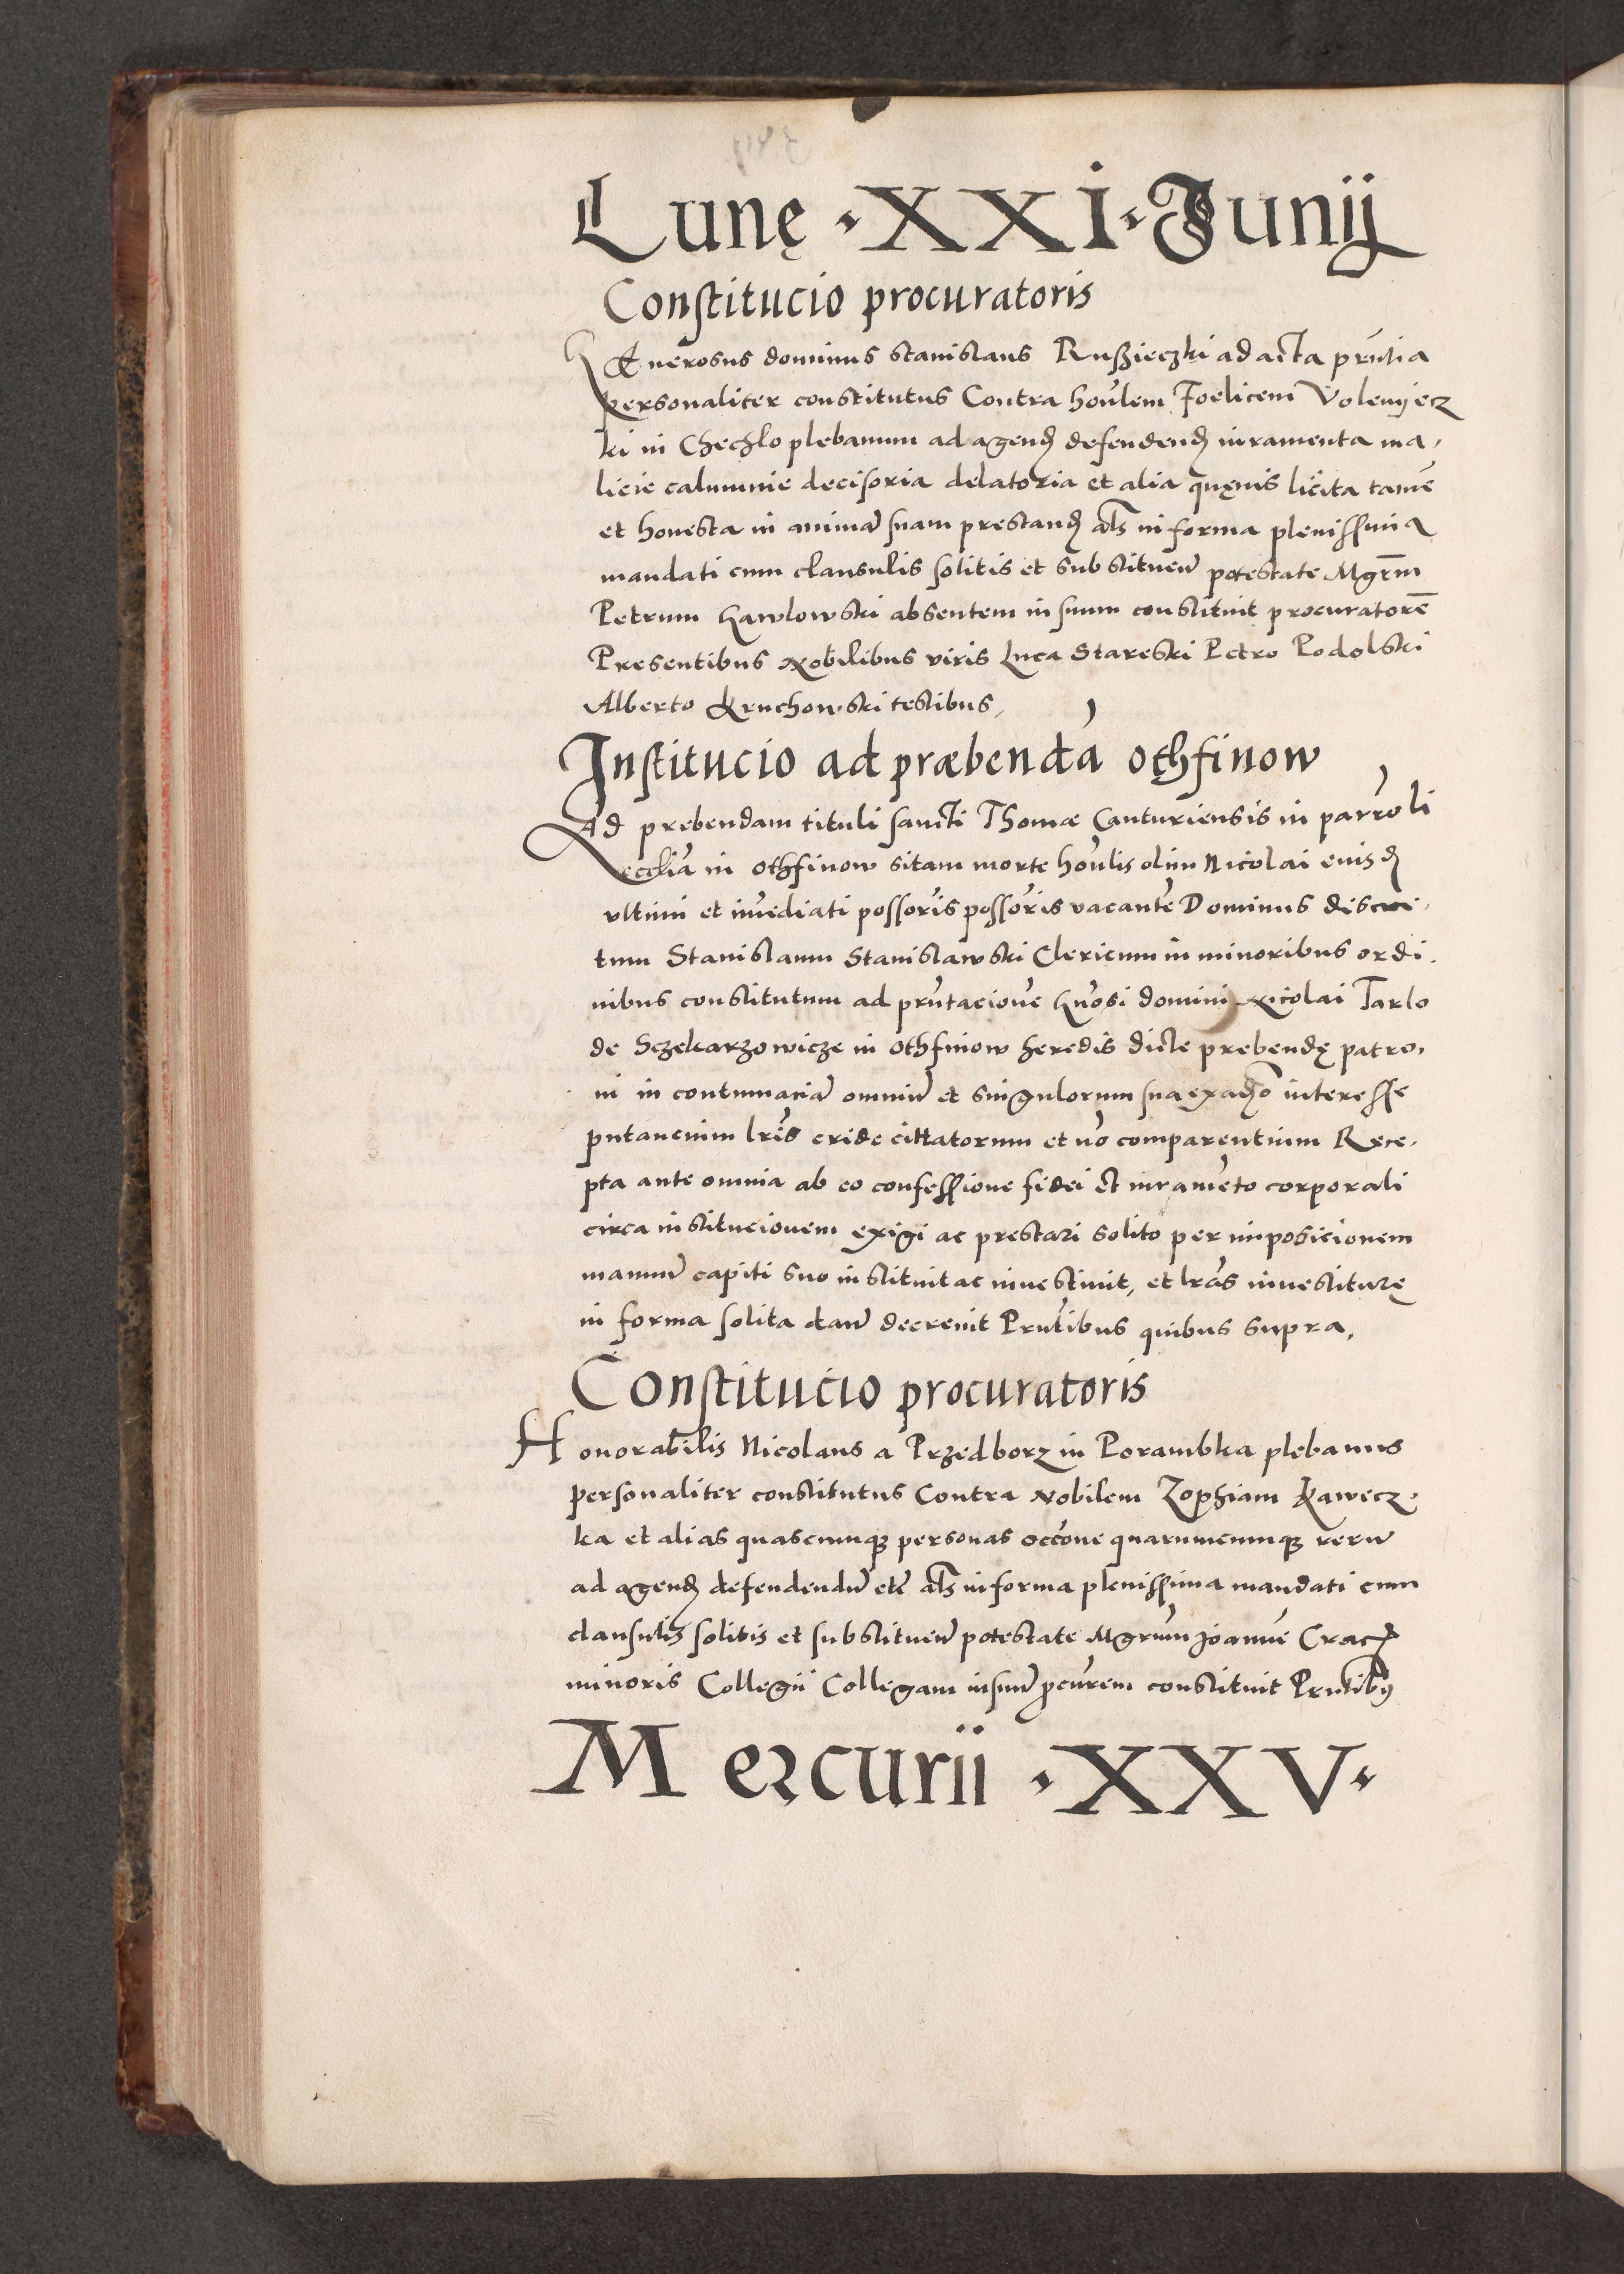 Lunę · XXI · Junij
Constitucio procuratoris
Generosus dominus Stanislaus Rußieczki ad acta pñtia
personaliter constitutus Contra honlem Foelicem Volenyecz
ki in Chechlo plebanum ad agend defendend iuramenta ma,
licie calumnie decisoria delatoria et alia quęuis licita tamē
et honesta in animā suam prestand als in forma plenissima
mandati cum clausulis solitis et substituen̄ potestate Mgrm̄
Petrum Gawlowski absentem in suum constituit procuratorē
Presentibus Nobilibus viris Luca Stareski Petro Podolski
Alberto Kruchowski testibus,
Institucio ad præbendā othfinow
Ad prebendam tituli sancti Thomæ Canturiensis in parroli
ecclia in Othfinow sitam morte honlis olim Nicolai eiusd
vltimi et imediati possoris possoris vacante Dominus discre,
tum Stanislaum Stanislawski Clericum in minoribus ordi,
nibus constitutum ad pñtacione Gnosi domini Nicolai Tarlo
de Sczekarzowicze in Othfinow heredis dicte prebendę patro,
ni in contumaciā omniū et singulorum sua interesse
putancium lris eride cittatorum et nō comparentium Rece,
pta ante omnia ab eo confessione fidei et iuramēto corporali
circa institucionem exigi ac prestari solito per imposicionem
manuū capiti suo instituit ac inuestiuit, et lras inuestiturę
in forma solita dan̄ decreuit Pñtibus quibus supra,
Constitucio procuratoris
Honorabilis Nicolaus a Przedborz in Porambka plebanus
personaliter constitutus Contra Nobilem Zophiam Kawecz,
ka et alias quascumq3 personas occōne quarumcumq3 rerū
ad agend defendendū etc̄ als in forma plenissima mandati cum
clausulis solitis et substituen̄ potestate Mgrum Joannē Crac
minoris Collegii Collegam in suū pcurem constituit Pñtibus
Mercurii · XXV ·